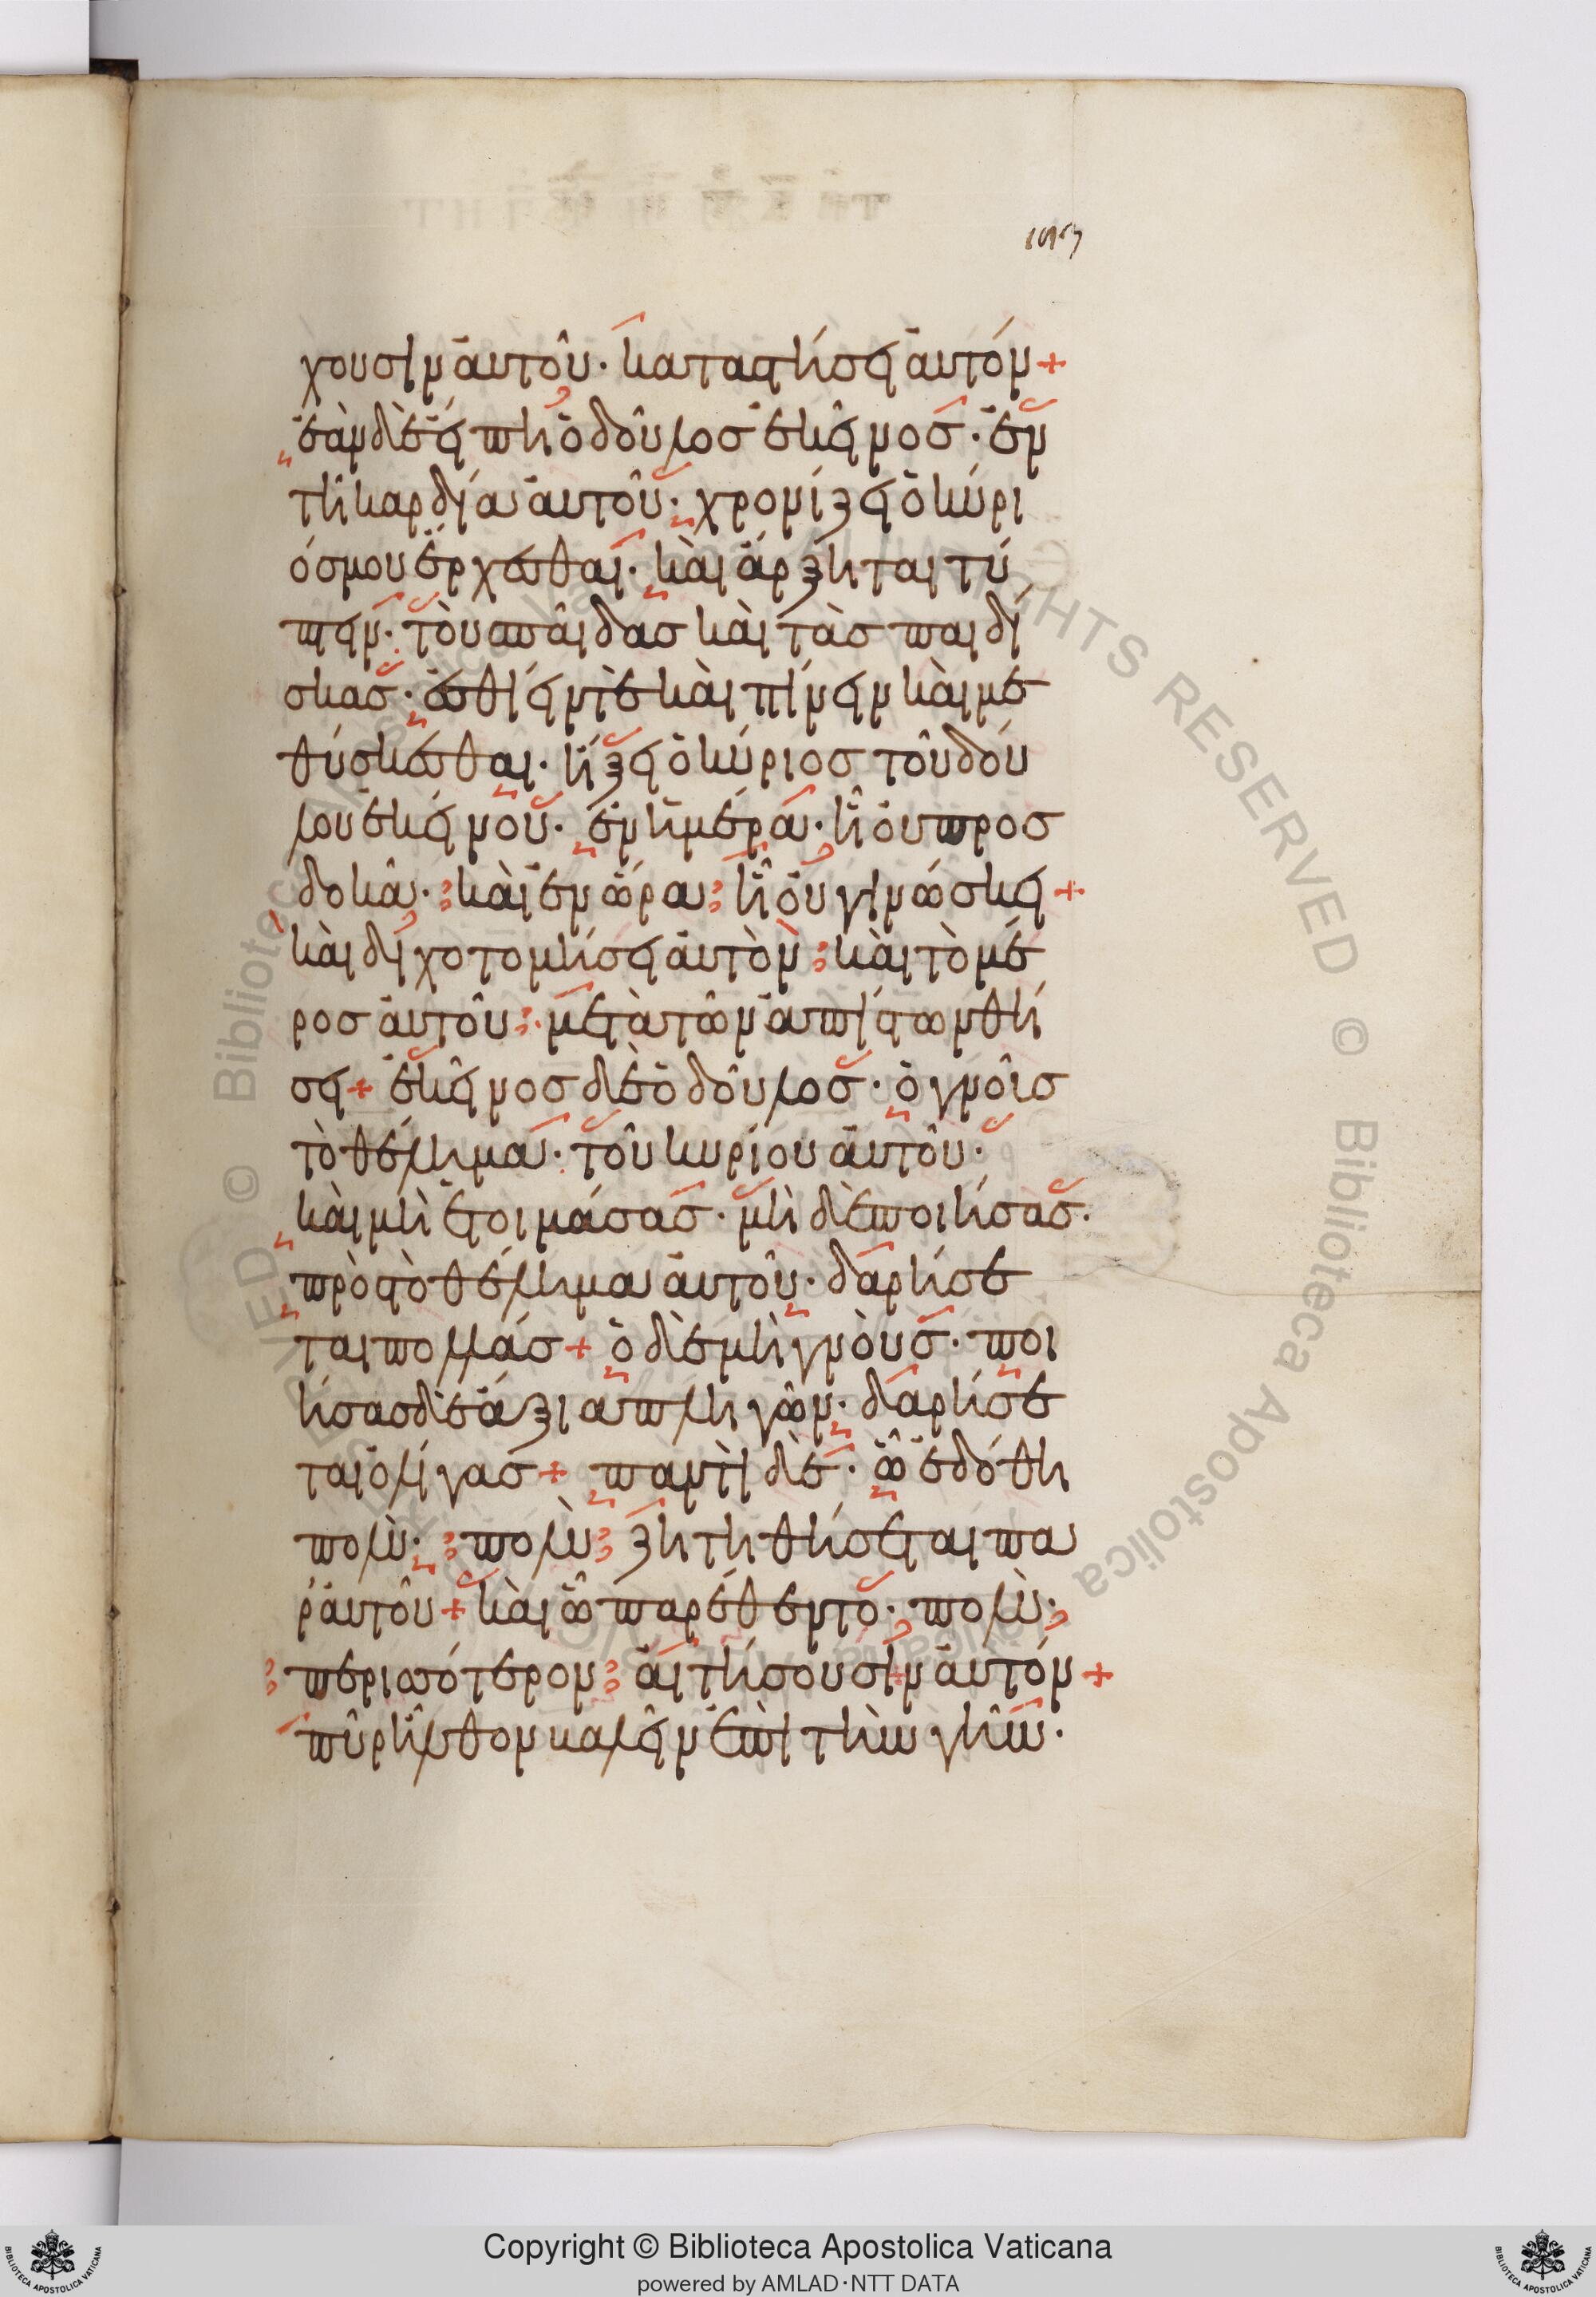 193
χουσιν ἀυτοῦ· καταστήσει ἀυτόν +
ἐὰν δὲ εἴπη ὁ δοῦλος ἐκεῖνος· ἐν
τῆ καρδία ἀυτοῦ· χρονίζει ὁ κύρι
ός μου ἔρχεσθαι· κὰι ἄρξηται τύ
πτειν· τοὺς παῖδας κὰι τὰς παιδί
σκας· ἐσθίειν τὲ κὰι πίνειν κὰι με
θύσκεσθαι· ἥξει ὁ κύριος τοῦ δού
λου ἐκείνου· ἐν ἡμέρα· ἧ ὀυ προσ
δοκᾶ· κὰι ἐν ὥρα ἧ ὀυ γινώσκει +
κὰι διχοτομήσει ἀυτὸν κὰι τὸ μέ
ρος ἀυτοῦ· μετὰ τῶν ἀπίστων θή
σει + ἐκεῖνος δὲ ὁ δοῦλος· ὁ γνοὺς
τὸ θέλημα· τοῦ κυρίου ἀυτοῦ·
κὰι μὴ ἑτοιμάσας· μὴ δὲ ποιήσας·
πρὸς τὸ θέλημα ἀυτοῦ· δαρήσε
ται πολλάς + ὁ δὲ μὴ γνοὺς· ποι
ήσας δὲ ἄξια πληγῶν· δαρήσε
ται ὀλίγας + παντὶ δὲ· ὧ ἐδόθη
πολὺ· πολὺ ζητηθήσεται πα
ρ᾽ ἀυτοῦ + κὰι ὧ παρέθεντο· πολὺ·
περισσότερον ἀιτήσουσιν ἀυτόν +
πῦρ ἦλθον καλεῖν ἐπὶ τὴν γῆν·
Copyright © Biblioteca Apostolica Vaticana
powered by AMLAD·NTT DATA